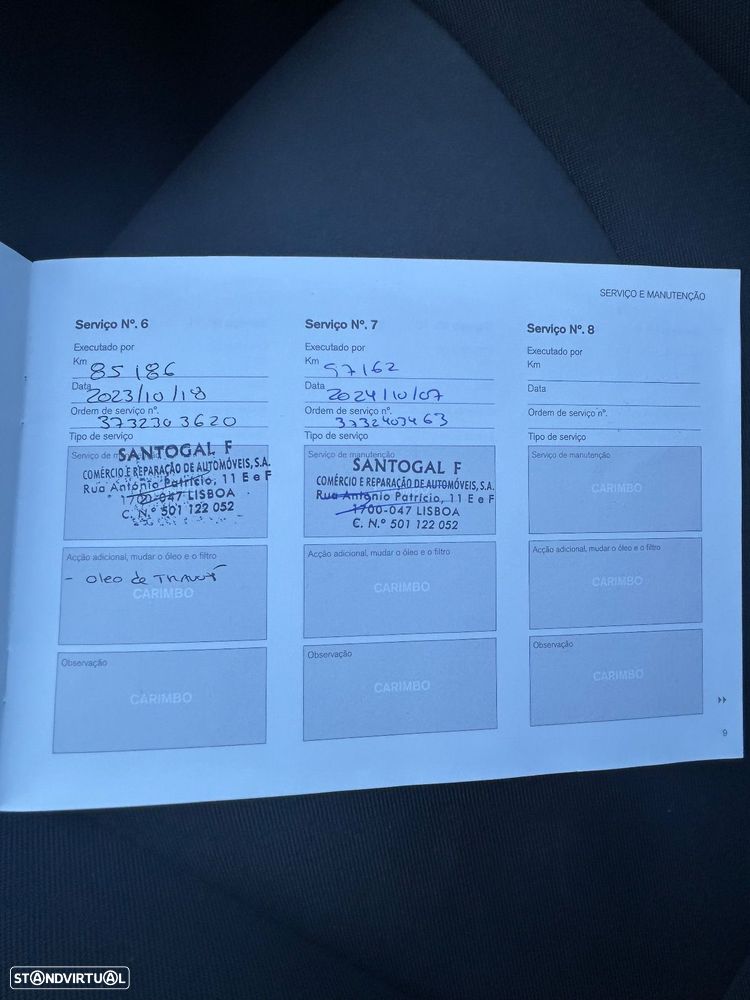 SERVIÇO E MANUTENÇÃO
Serviço Nº. 6
Executado por
Km 85186
Data 2023/10/18
Ordem de serviço nº.
373230 3620
Tipo de serviço
Serviço de
SANTOGAL F
COMÉRCIO E REPARAÇÃO DE AUTOMÓVEIS, S.A.
Rua António Patrício, 11 E e F
1700-047 LISBOA
C. N.º 501 122 052
Acção adicional, mudar o óleo e o filtro
- oleo de
CARIMBO
Observação
CARIMBO
Serviço Nº. 7
Executado por
Km 97162
Data 2024/10/07
Ordem de serviço nº.
3732403463
Tipo de serviço
Serviço de manutenção
SANTOGAL F
COMÉRCIO E REPARAÇÃO DE AUTOMÓVEIS, S.A.
Rua António Patrício, 11 E e F
1700-047 LISBOA
C. N.º 501 122 052
Acção adicional, mudar o óleo e o filtro
CARIMBO
Observação
CARIMBO
Serviço Nº. 8
Executado por
Km
Data
Ordem de serviço nº.
Tipo de serviço
Serviço de manutenção
CARIMBO
Acção adicional, mudar o óleo e o filtro
CARIMBO
Observação
CARIMBO
9
STANDVIRTUAL